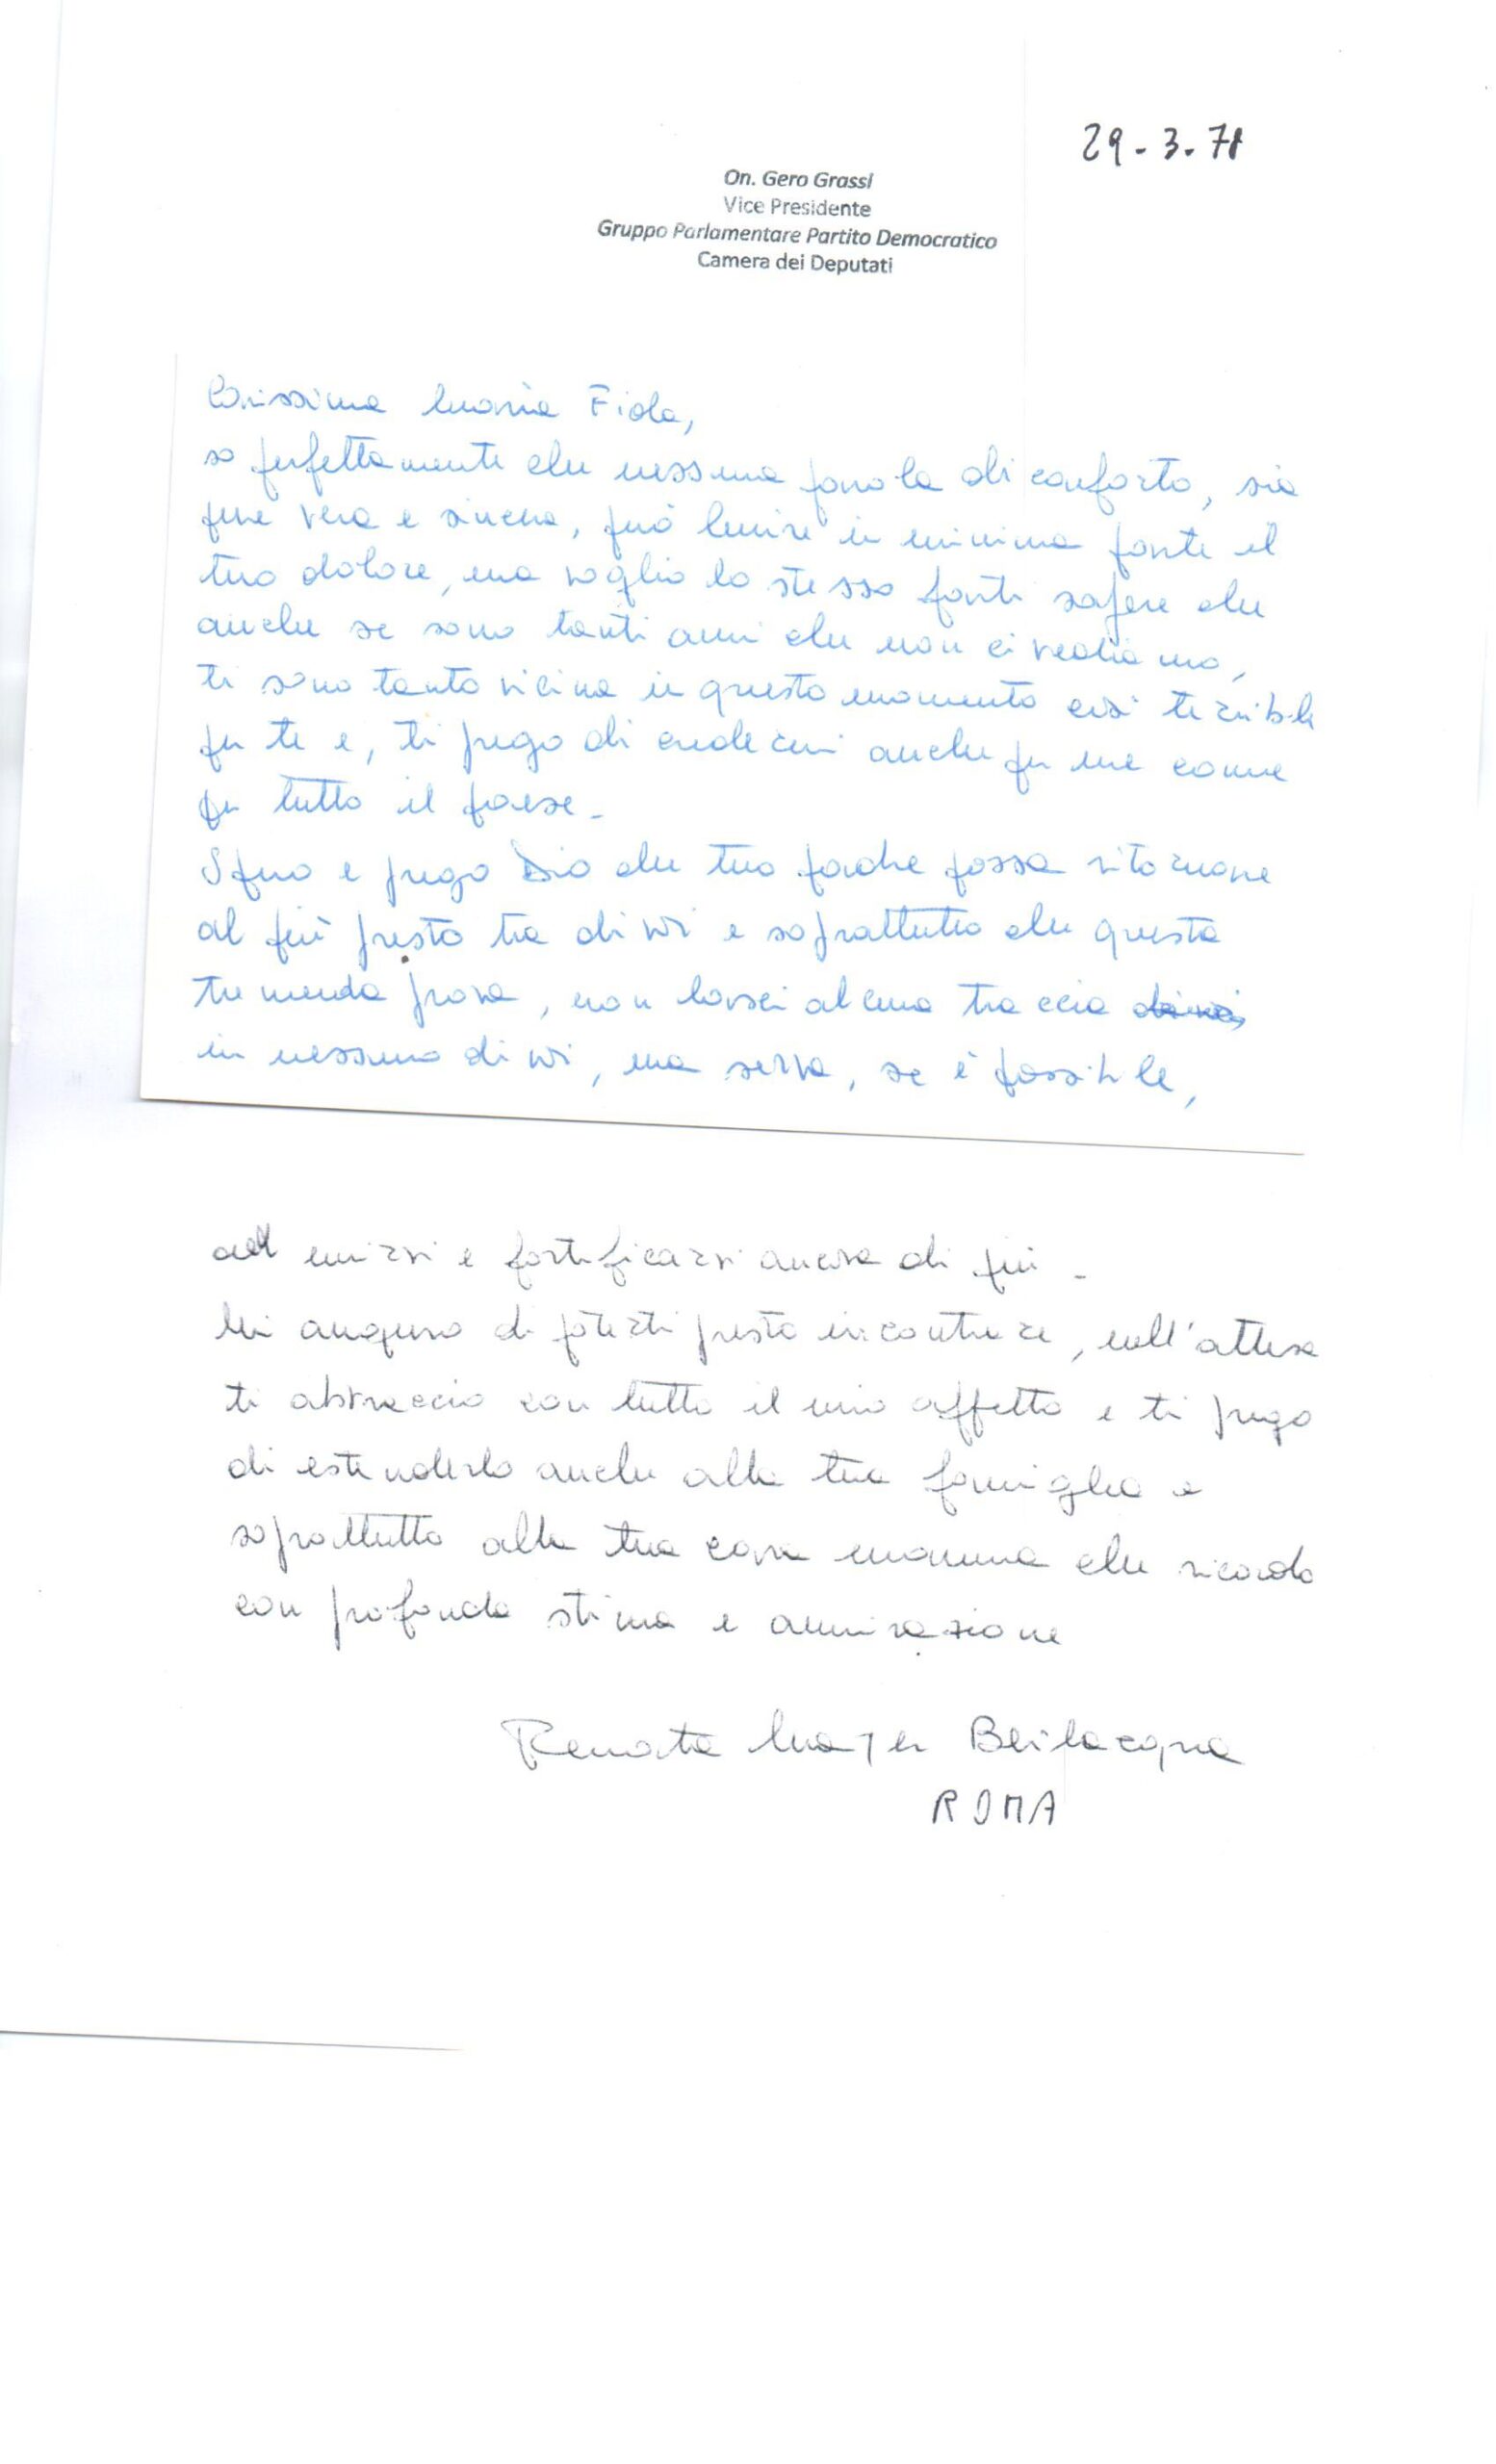 29-3-78
On. Gero Grassi
Vice Presidente
Gruppo Parlamentare Partito Democratico
Camera dei Deputati
Carissima Maria Fida,
so perfettamente che nessuna parola di conforto, sia
pure vera e sincera, può lenire in minima parte il
tuo dolore, ma voglio lo stesso farti sapere che
anche se sono tanti anni che non ci vediamo,
ti sono tanto vicina in questo momento così terribile
per te e, ti prego di credermi anche per me come
per tutto il paese.
Spero e prego Dio che tuo padre possa ritornare
al più presto tra di voi e soprattutto che questa
tremenda prova, non lasci alcuna traccia
in nessuno di voi, ma serva, se è possibile,
ad unirvi e fortificarvi ancora di più.
Mi auguro di poterti presto incontrare, nell'attesa
ti abbraccio con tutto il mio affetto e ti prego
di estenderlo anche alla tua famiglia e
soprattutto alla tua cara mamma che ricordo
con profonda stima e ammirazione
Renata Mayer Bevilacqua
ROMA